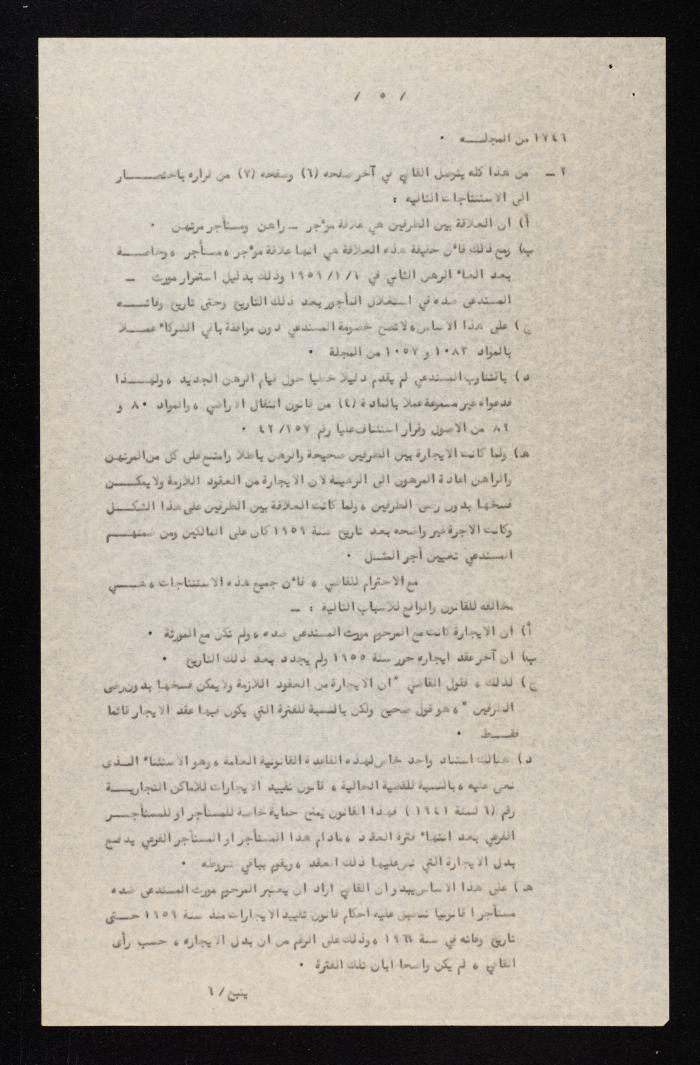 / ٥ /
١٧٤٦ من المجلـــه ٠
٢ ــ من هذا كله يتوصل القاضي في آخر صفحه (٦) وصفحه (٧) من قراره باختصــــار
الى الاستنتاجات التاليه :
أ) ان العلاقة بين الطرفين هي علاقة مؤجر ــ راهن ومستأجر مرتهن ٠
ب) ومع ذلك فان حقيقة هذه العلاقة هي انها علاقة مؤجر ، مستأجر ، وخاصـــة
بعد الغاء الرهن الثاني في ١/١/١٩٥٦ وذلك بدليل استمرار مورث ــ
المستدعى ضده في استغلال المأجور بعد ذلك التاريخ وحتى تاريخ وفاتــــه
ج) على هذا الاساس، لا تصح خصومة المستدعي دون موافقة باقي الشركاء عمـــلا
بالمواد ١٠٨٣ و ١٠٥٧ من المجلة ٠
د) بالتناوب المستدعي لم يقدم دليلا خطيا حول قيام الرهن الجديد ، ولهــــذا
فدعواه غير مسموعة عملا بالمادة (٤) من قانون انتقال الاراضي ، والمواد ٨٠ و
٨٢ من الاصول وقرار استئناف عليا رقم ٤٢/١٥٧ ٠
هـ) ولما كانت الايجارة بين الطرفين صحيحة والرهن باطلا وامتنع على كل من المرتهن
والراهن اعادة المرهون الى الرهينة لان الايجارة من العقود اللازمة ولا يمكـــن
فسخها بدون رضى الطرفين ، ولما كانت العلاقة بين الطرفين على هذا الشكـــل
وكانت الاجرة غير واضحه بعد تاريخ سنة ١٩٥٦ كان على المالكين ومن ضمنهـــم
المستدعي تعيين أجر المثـــل ٠
مع الاحترام للقاضي ، فان جميع هذه الاستنتاجات ، هـــي
مخالفه للقانون والواقع للاسباب التالية : ــ
أ) ان الايجارة كانت مع المرحوم مورث المستدعى ضده ، ولم تكن مع المورثة ٠
ب) ان آخر عقد ايجاره حرر سنة ١٩٥٥ ولم يجدد بعد ذلك التاريخ ٠
ج) لذلك ، فقول القاضي " ان الايجارة من العقود اللازمة ولا يمكن فسخها بدون رضى
الطرفين " ، هو قول صحيح ولكن بالنسبة للفترة التي يكون فيها عقد الايجار قائما
فقـــط ٠
د) هنالك استثناء واحد خاص لهذه القاعدة القانونية العامة ، وهو الاستثناء الـــذى
نص عليه ، بالنسبة للقضية الحالية ، قانون تقييد الايجارات للاماكن التجاريــــة
رقم (٦ لسنة ١٩٤١ ) فهذا القانون يمنح حماية خاصة للمستأجر او للمستأجـــر
الفرعي بعد انتهاء فترة العقد ، مادام هذا المستأجر او المستأجر الفرعي يدفع
بدل الايجارة التي نص عليها ذلك العقد ، ويقوم بباقي شروطه ٠
هـ) على هذا الاساس يبدو ان القاضي اراد ان يعتبر المرحوم مورث المستدعى ضده
مستأجرا قانونيا تنطبق عليه احكام قانون تقييد الايجارات منذ سنة ١٩٥٦ حـــتى
تاريخ وفاته في سنة ، وذلك على الرغم من ان بدل الايجاره ، حسب رأى
القاضي ، لم يكن واضحا ابان تلك الفترة ٠
يتبع / ٦